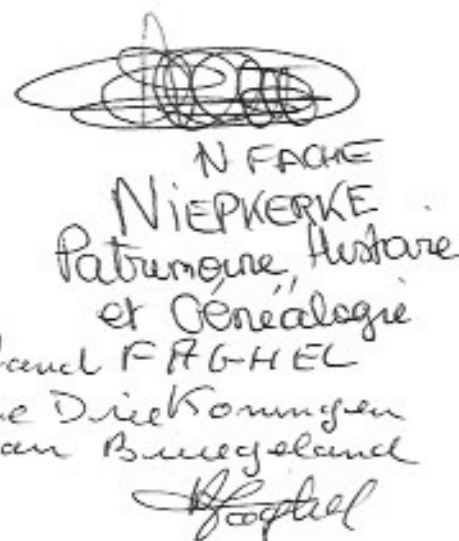 N FACHE
NIEPKERKE
Patrimoine, Histoire
et Généalogie
FAGHEL
Driekoningen
Bruegeland